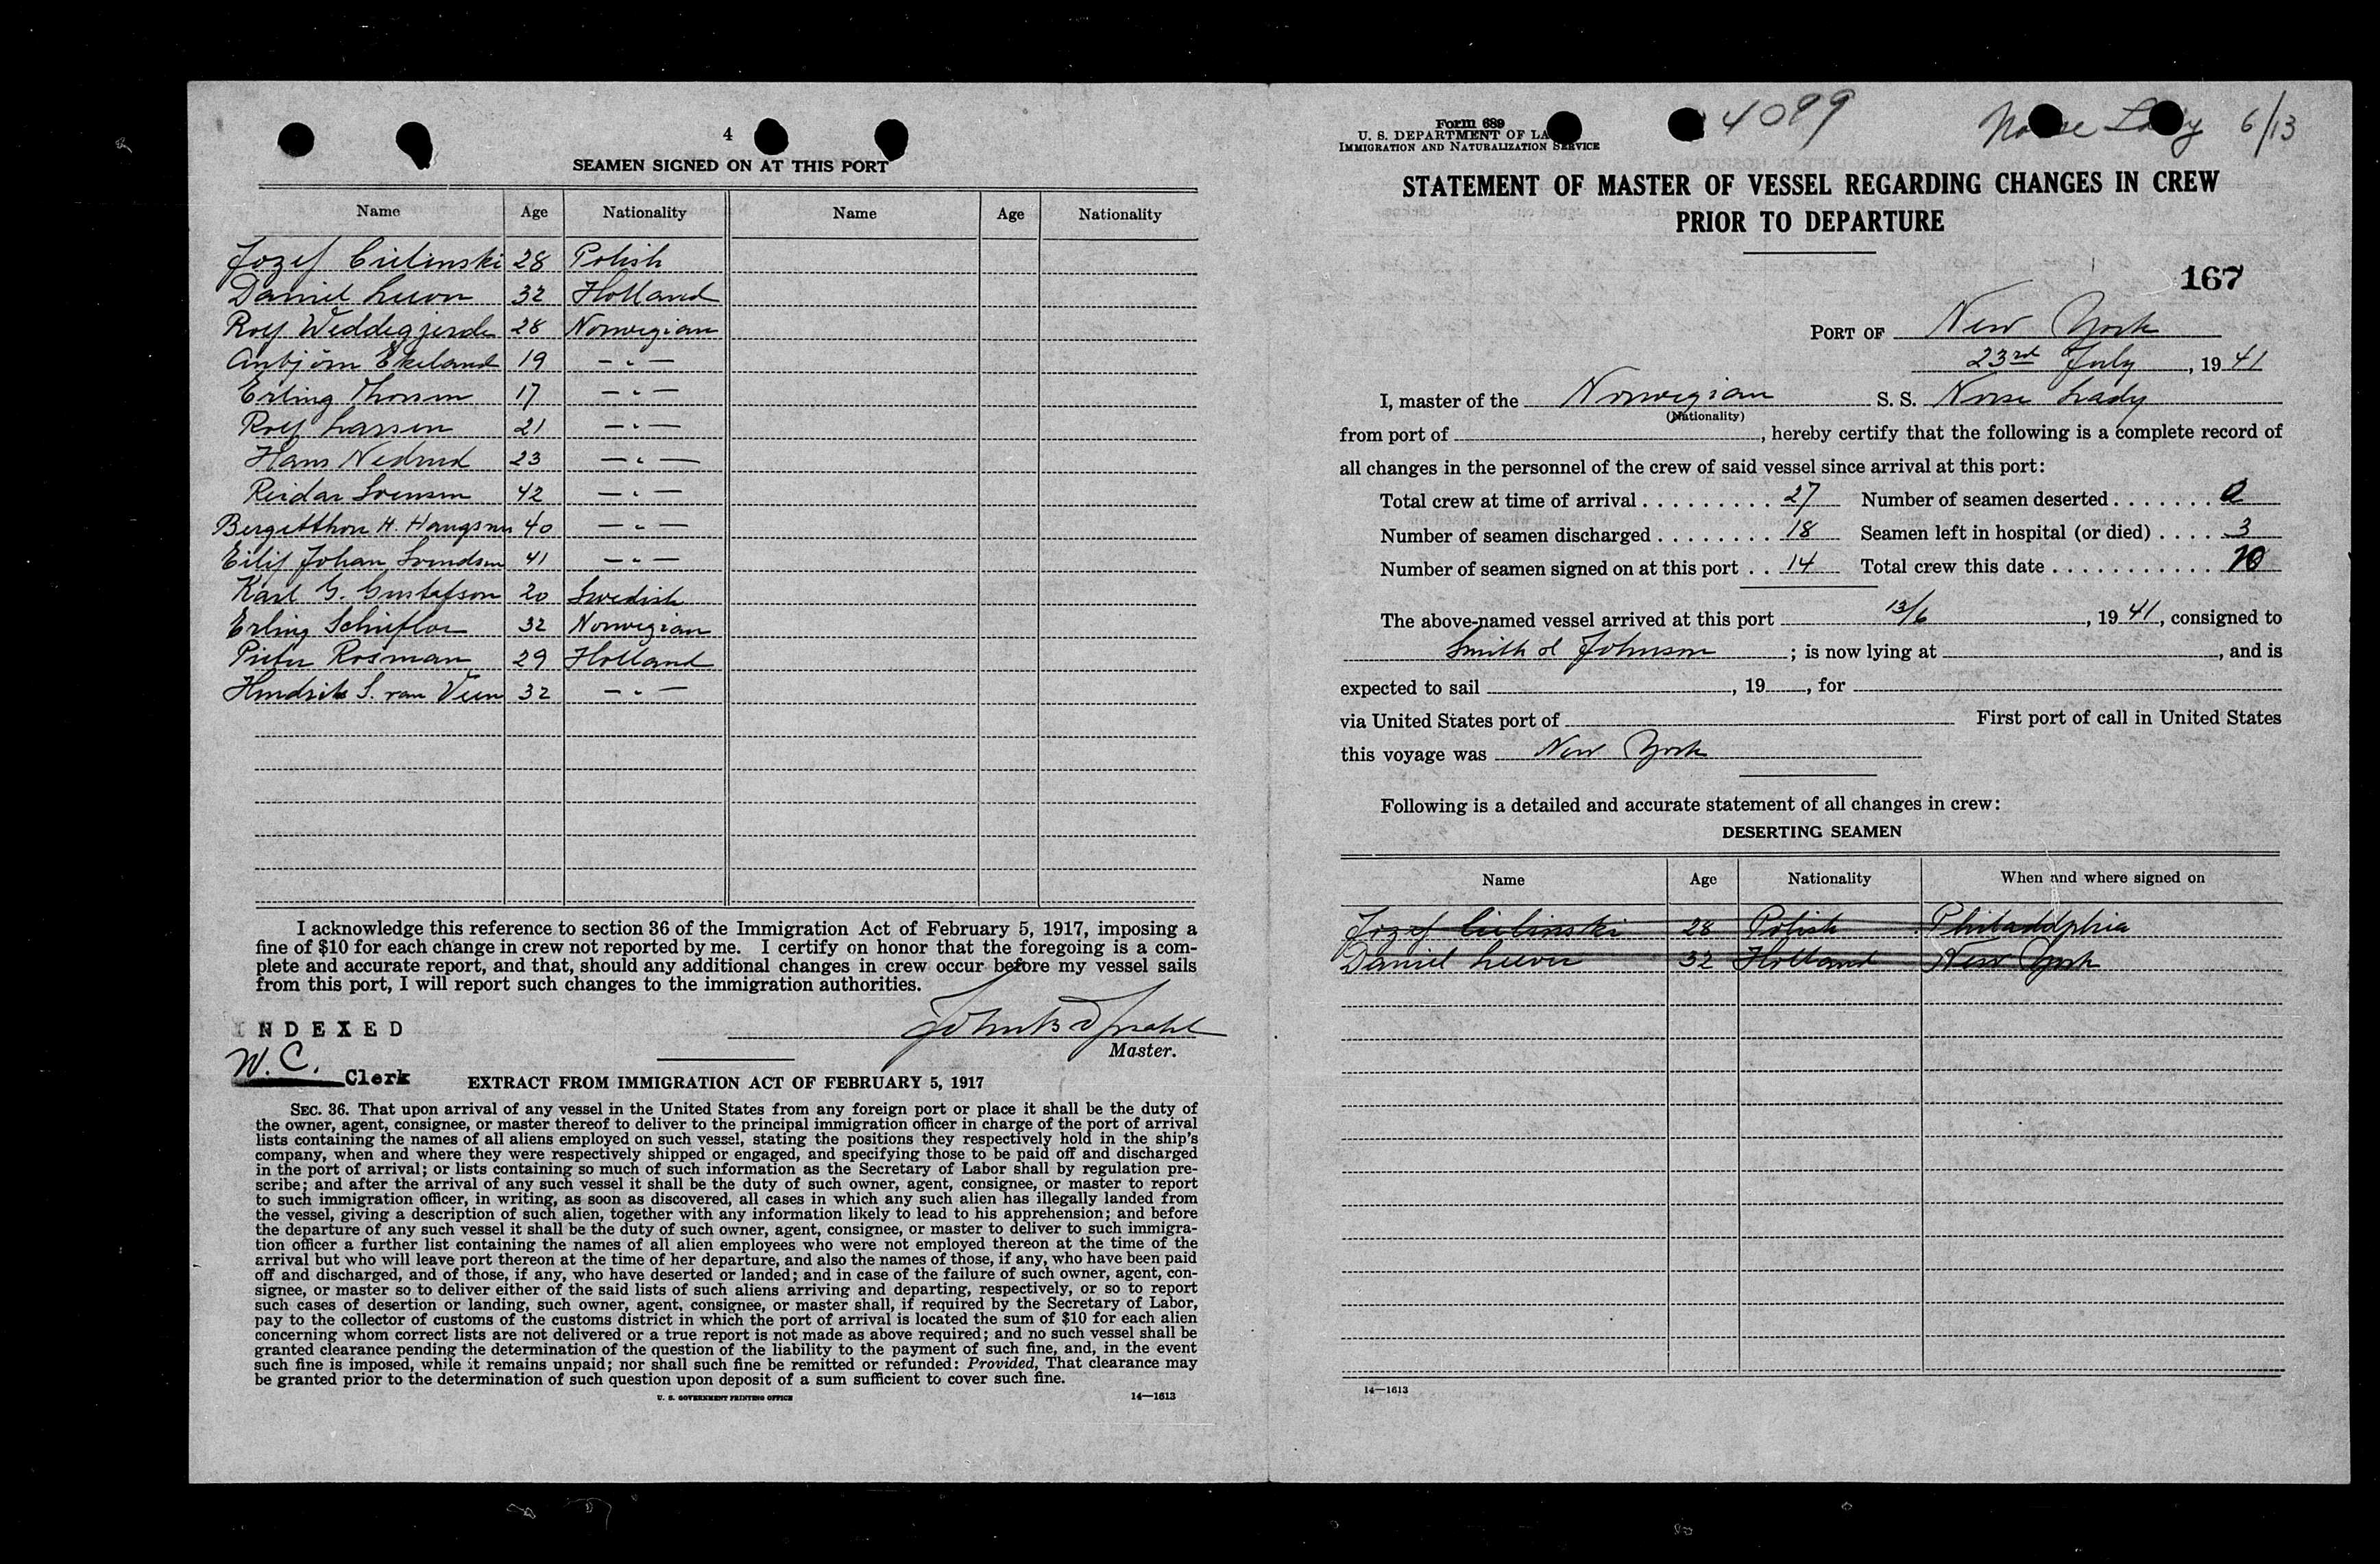 4
SEAMEN SIGNED ON AT THIS PORT
Name Age Nationality Name Age Nationality
Jozef Cielinski 28 Polish
Daniel 32 Holland
Rolf Weddegjerde 28 Norwegian
Anbjörn Ekeland 19 — " —
Erling Thorsen 17 — " —
Rolf Larsen 21 — " —
Hans Nedrud 23 — " —
Reidar Svensen 42 — " —
H. 40 — " —
Eilif Johan Svendsen 41 — " —
Karl G. Gustafson 20 Swedish
Erling 32 Norwegian
Pieter Rosman 29 Holland
Hendrik S. van Veen 32 — " —
I acknowledge this reference to section 36 of the Immigration Act of February 5, 1917, imposing a
fine of $10 for each change in crew not reported by me. I certify on honor that the foregoing is a com-
plete and accurate report, and that, should any additional changes in crew occur before my vessel sails
from this port, I will report such changes to the immigration authorities.
INDEXED
Master.
W. C. Clerk
EXTRACT FROM IMMIGRATION ACT OF FEBRUARY 5, 1917
SEC. 36. That upon arrival of any vessel in the United States from any foreign port or place it shall be the duty of
the owner, agent, consignee, or master thereof to deliver to the principal immigration officer in charge of the port of arrival
lists containing the names of all aliens employed on such vessel, stating the positions they respectively hold in the ship's
company, when and where they were respectively shipped or engaged, and specifying those to be paid off and discharged
in the port of arrival; or lists containing so much of such information as the Secretary of Labor shall by regulation pre-
scribe; and after the arrival of any such vessel it shall be the duty of such owner, agent, consignee, or master to report
to such immigration officer, in writing, as soon as discovered, all cases in which any such alien has illegally landed from
the vessel, giving a description of such alien, together with any information likely to lead to his apprehension; and before
the departure of any such vessel it shall be the duty of such owner, agent, consignee, or master to deliver to such immigra-
tion officer a further list containing the names of all alien employees who were not employed thereon at the time of the
arrival but who will leave port thereon at the time of her departure, and also the names of those, if any, who have been paid
off and discharged, and of those, if any, who have deserted or landed; and in case of the failure of such owner, agent, con-
signee, or master so to deliver either of the said lists of such aliens arriving and departing, respectively, or so to report
such cases of desertion or landing, such owner, agent, consignee, or master shall, if required by the Secretary of Labor,
pay to the collector of customs of the customs district in which the port of arrival is located the sum of $10 for each alien
concerning whom correct lists are not delivered or a true report is not made as above required; and no such vessel shall be
granted clearance pending the determination of the question of the liability to the payment of such fine, and, in the event
such fine is imposed, while it remains unpaid; nor shall such fine be remitted or refunded: Provided, That clearance may
be granted prior to the determination of such question upon deposit of a sum sufficient to cover such fine.
U. S. GOVERNMENT PRINTING OFFICE 14—1613
Form 689
U. S. DEPARTMENT OF LA
IMMIGRATION AND NATURALIZATION SERVICE
4099
Norse Lady 6/13
STATEMENT OF MASTER OF VESSEL REGARDING CHANGES IN CREW
PRIOR TO DEPARTURE
167
PORT OF New York
23rd July, 1941
I, master of the Norwegian S. S. Norse Lady
(Nationality)
from port of , hereby certify that the following is a complete record of
all changes in the personnel of the crew of said vessel since arrival at this port:
Total crew at time of arrival . . . . . . . . . 27 Number of seamen deserted . . . . . . . 0
Number of seamen discharged . . . . . . . . 18 Seamen left in hospital (or died) . . . . 3
Number of seamen signed on at this port . . 14 Total crew this date . . . . . . . . . . . . 20
The above-named vessel arrived at this port 13/6, 1941, consigned to
Smith & Johnson ; is now lying at , and is
expected to sail , 19 , for
via United States port of First port of call in United States
this voyage was New York
Following is a detailed and accurate statement of all changes in crew:
DESERTING SEAMEN
Name Age Nationality When and where signed on
Jozef Cielinski 28 Polish Philadelphia
Daniel 32 Holland New York
14—1613